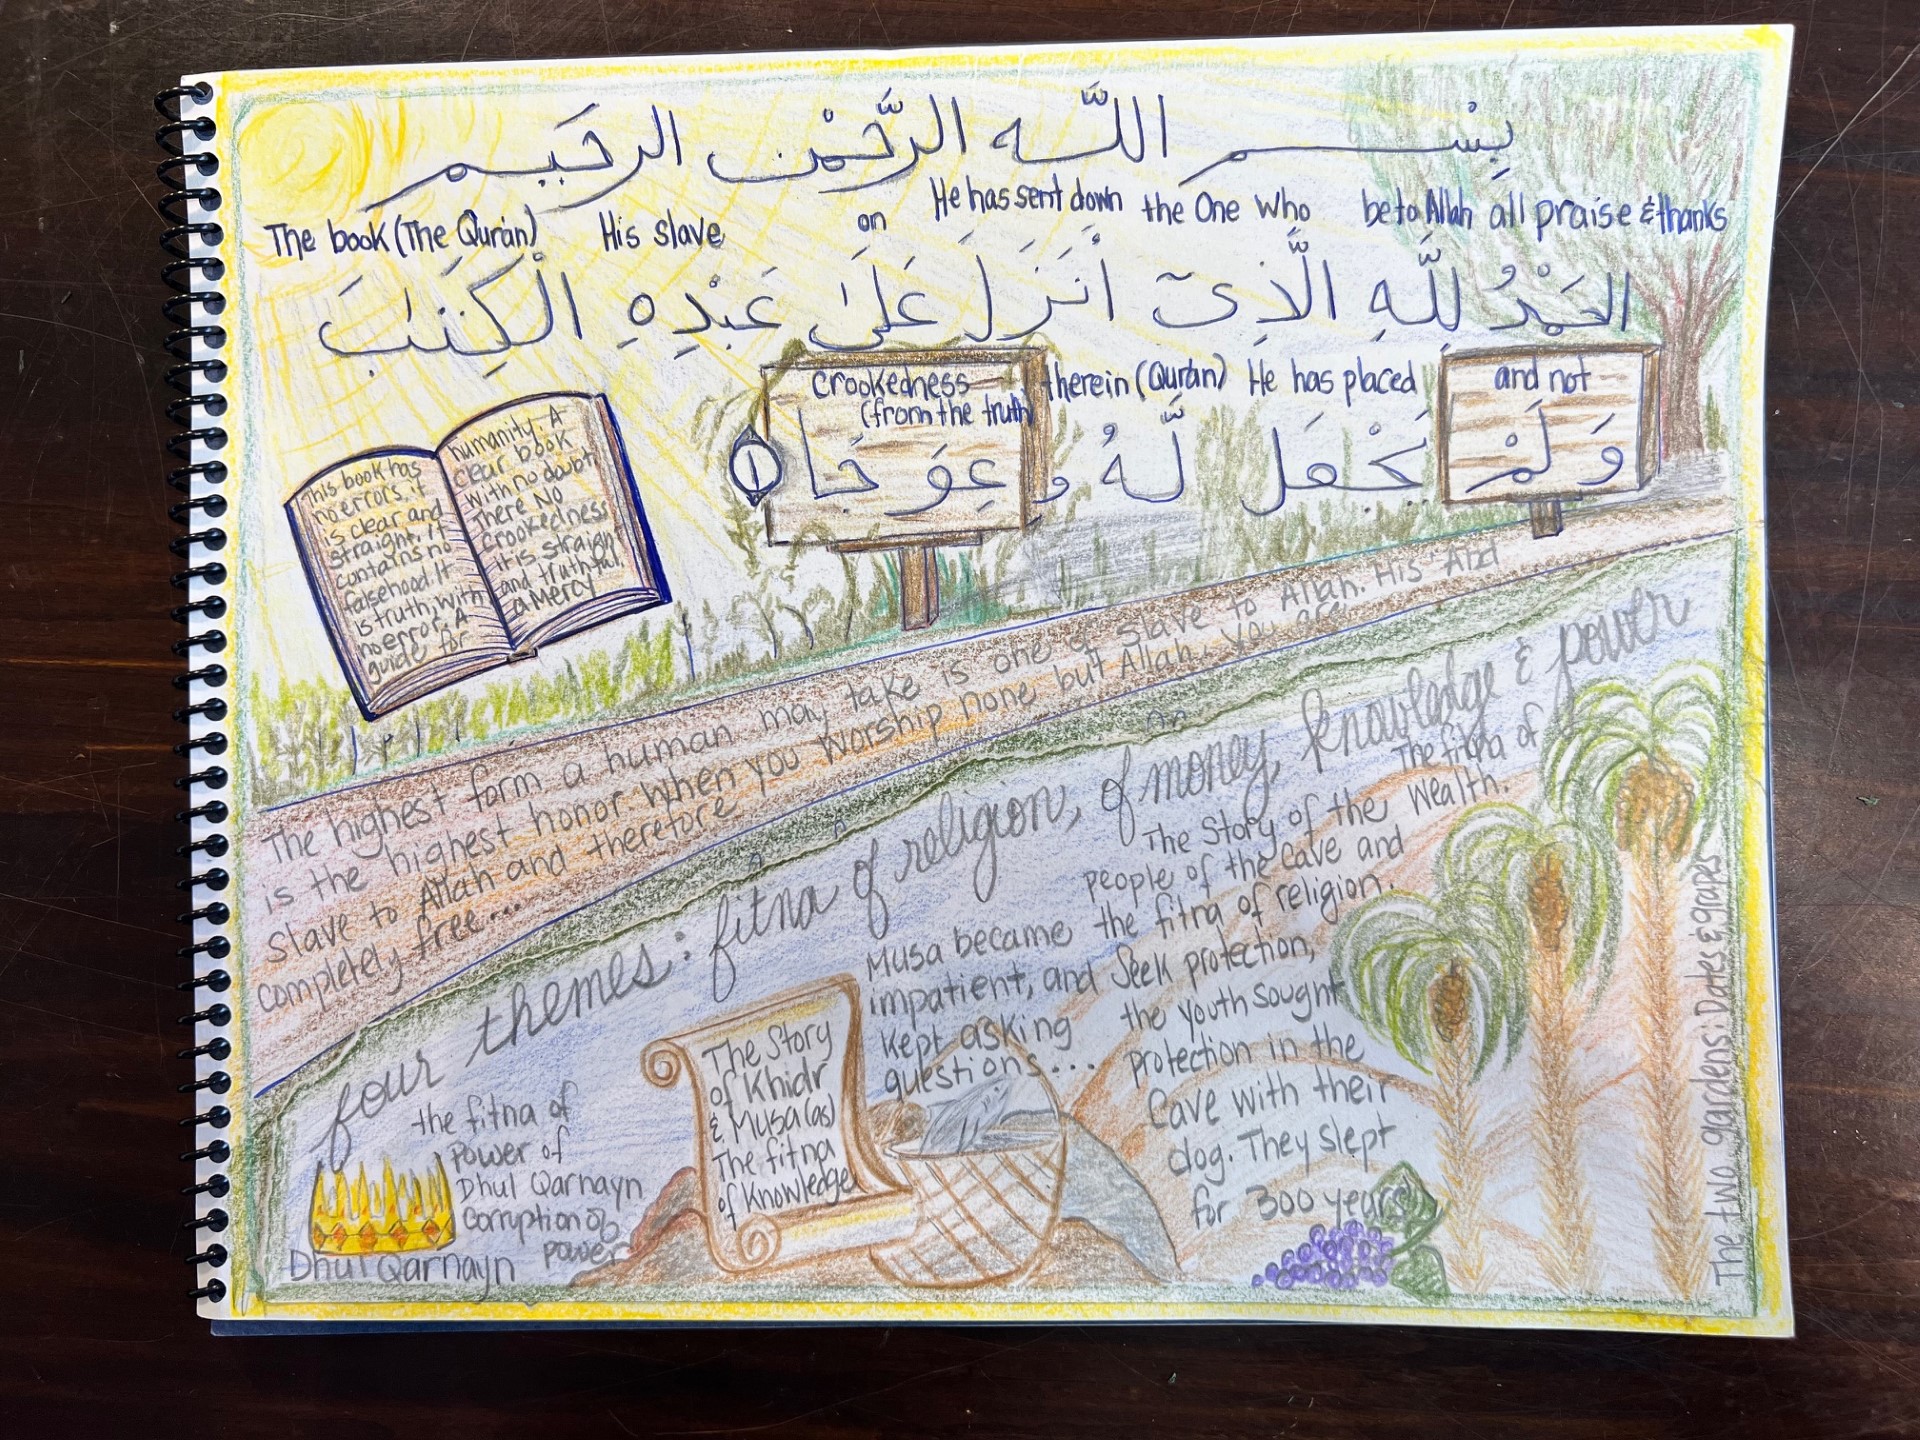 بِسْم اللّه الرَّحْمٰن الرحَيم
The book (The Qur'an) His slave on He has sent down the One Who be to Allah all praise & thanks
الحَمْدُ لِلَّهِ الَّذِىٓ أَنَزَلَ عَلَىٰ عَبْدِهِ الْكِتَٰبَ
crookedness
(from the truth
therein (Qur'an) He has placed
and not
وَلَمْ يَجْعَل لَّهُ و عِوَجَا ١
This book has
no errors, it
is clear and
straight. It
contains no
falsehood. It
is truth, with
no error. A
guide for
humanity. A
clear book
with no doubt
There No
crookedness
it is straigh
and truthful,
a Mercy
The highest form a human may take is one of slave to Allah. His "Abd"
is the highest honor when you worship none but Allah, you are
slave to Allah and therefore
completely free...
four themes: fitna of religion, of money, knowledge & power
the fitna of
power of
Dhul Qarnayn
corruption of
power
Dhul Qarnayn
The Story
of Khidr
& Musa (as)
The fitna
of Knowledge
Musa became
impatient, and
kept asking
questions...
The Story of the
people of the cave and
the fitna of religion.
Seek protection,
the youth sought
protection in the
Cave with their
dog. They slept
for 300 years
The fitna of
Wealth.
The two gardens: Dates & grapes